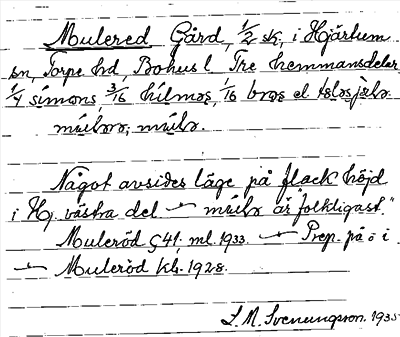 Mulered Gård, 1/2 sk, i Hjärtum
sn, Torpe hd, Bohus l. Tre hemmansdelar
1/4 simons, 3/16 hilməs, 1/16 bros el
Något avsides läge på flack höjd
i Hj. västra del är "folkligast."
Muleröd G41. ml. 1933. Prep. på i
Muleröd kb. 1928.
L. M. Svenungsson. 1935